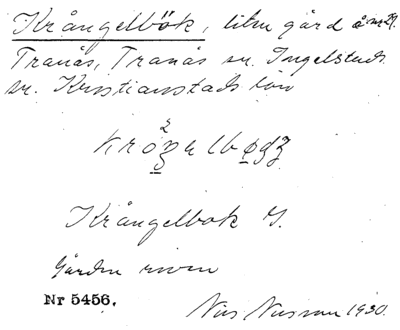 Krångelbök, liten gård å nr 29.
Tranås, Tranås sn. Ingelstads
sn. Kristianstads län
Krångelbok
Gården riven
Nr 5456.
Nils Nilsson 1930.